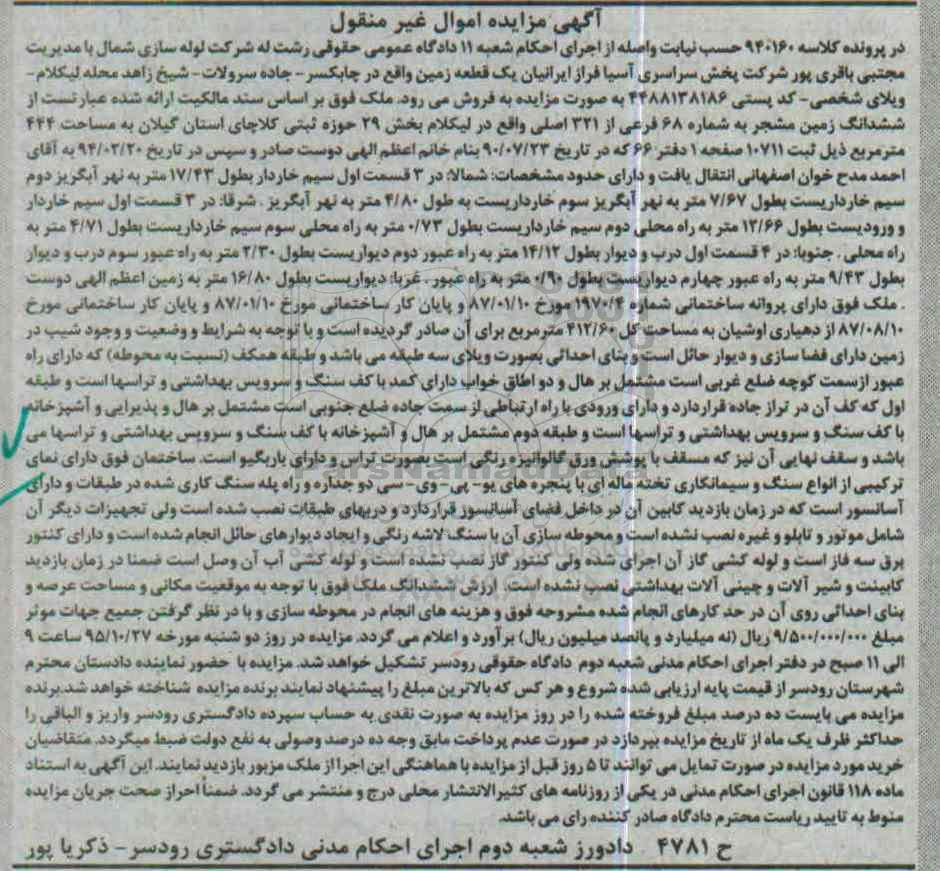 آگهی مزایده اموال غیر منقول
در پرونده کلاسه ۹۴۰۱۶۰ حسب نیابت واصله از اجرای احکام شعبه ۱۱ دادگاه عمومی حقوقی رشت له شرکت لوله سازی شمال با مدیریت
مجتبی باقری پور شرکت پخش سراسری آسیا فراز ایرانیان یک قطعه زمین واقع در چابکسر - جاده سرولات - شیخ زاهد محله لیکلام -
ویلای شخصی - کد پستی ۴۴۸۸۱۳۸۱۸۶ به صورت مزایده به فروش می رود. ملک فوق بر اساس سند مالکیت ارائه شده عبارتست از
ششدانگ زمین مشجر به شماره ۶۸ فرعی از ۳۲۱ اصلی واقع در لیکلام بخش ۲۹ حوزه ثبتی کلاچای استان گیلان به مساحت ۴۴۴
مترمربع ذیل ثبت ۱۰۷۱۱ صفحه ۱ دفتر ۶۶ که در تاریخ ۹۰/۰۷/۲۳ بنام خانم اعظم الهی دوست صادر و سپس در تاریخ ۹۴/۰۲/۲۰ به آقای
احمد مدح خوان اصفهانی انتقال یافت و دارای حدود مشخصات: شمالا: در ۳ قسمت اول سیم خاردار بطول ۱۷/۴۳ متر به نهر آبگریز دوم
سیم خارداریست بطول ۷/۶۷ متر به نهر آبگریز سوم خارداریست به طول ۴/۸۰ متر به نهر آبگریز . شرقا: در ۳ قسمت اول سیم خاردار
و ورودیست بطول ۱۳/۶۶ متر به راه محلی دوم سیم خارداریست بطول ۰/۷۳ متر به راه محلی سوم سیم خارداریست بطول ۴/۷۱ متر به
راه محلی . جنوبا: در ۴ قسمت اول درب و دیوار بطول ۱۴/۱۲ متر به راه عبور دوم دیواریست بطول ۲/۳۰ متر به راه عبور سوم درب و دیوار
بطول ۹/۴۳ متر به راه عبور چهارم دیواریست بطول ۰/۹۰ متر به راه عبور . غربا: دیواریست بطول ۱۶/۸۰ متر به زمین اعظم الهی دوست
. ملک فوق دارای پروانه ساختمانی شماره ۱۹۷۰/۴ مورخ ۸۷/۰۱/۱۰ و پایان کار ساختمانی مورخ ۸۷/۰۱/۱۰ و پایان کار ساختمانی مورخ
۸۷/۰۸/۱۰ از دهیاری اوشیان به مساحت کل ۴۱۲/۶۰ مترمربع برای آن صادر گردیده است و با توجه به شرایط و وضعیت و وجود شیب در
زمین دارای فضا سازی و دیوار حائل است و بنای احداثی بصورت ویلای سه طبقه می باشد و طبقه همکف (نسبت به محوطه) که دارای راه
عبور ازسمت کوچه ضلع غربی است مشتمل بر هال و دو اطاق خواب دارای کمد با کف سنگ و سرویس بهداشتی و تراسها است و طبقه
اول که کف آن در تراز جاده قراردارد و دارای ورودی با راه ارتباطی از سمت جاده ضلع جنوبی است مشتمل بر هال و پذیرایی و آشپزخانه
با کف سنگ و سرویس بهداشتی و تراسها است و طبقه دوم مشتمل بر هال و آشپزخانه با کف سنگ و سرویس بهداشتی و تراسها می
باشد و سقف نهایی آن نیز که مسقف با پوشش ورق گالوانیزه رنگی است بصورت تراس و دارای باربگیو است. ساختمان فوق دارای نمای
ترکیبی از انواع سنگ و سیمانکاری تخته ماله ای با پنجره های یو- پی- وی- سی دو جداره و راه پله سنگ کاری شده در طبقات و دارای
آسانسور است که در زمان بازدید کابین آن در داخل فضای آسانسور قراردارد و دربهای طبقات نصب شده است ولی تجهیزات دیگر آن
شامل موتور و تابلو و غیره نصب نشده است و محوطه سازی آن با سنگ لاشه رنگی و ایجاد دیوارهای حائل انجام شده است و دارای کنتور
برق سه فاز است و لوله کشی گاز آن اجرای شده ولی کنتور گاز نصب نشده است و لوله کشی آب آن وصل است ضمنا در زمان بازدید
کابینت و شیر آلات و چینی آلات بهداشتی نصب نشده است. ارزش ششدانگ ملک فوق با توجه به موقعیت مکانی و مساحت عرصه و
بنای احداثی روی آن در حد کارهای انجام شده مشروحه فوق و هزینه های انجام در محوطه سازی و با در نظر گرفتن جمیع جهات موثر
مبلغ ۹/۵۰۰/۰۰۰/۰۰۰ ریال (نه میلیارد و پانصد میلیون ریال) برآورد و اعلام می گردد. مزایده در روز دو شنبه مورخه ۹۵/۱۰/۲۷ ساعت ۹
الی ۱۱ صبح در دفتر اجرای احکام مدنی شعبه دوم دادگاه حقوقی رودسر تشکیل خواهد شد. مزایده با حضور نماینده دادستان محترم
شهرستان رودسر از قیمت پایه ارزیابی شده شروع و هر کس که بالاترین مبلغ را پیشنهاد نمایند برنده مزایده شناخته خواهد شد.برنده
مزایده می بایست ده درصد مبلغ فروخته شده را در روز مزایده به صورت نقدی به حساب سپرده دادگستری رودسر واریز و الباقی را
حداکثر ظرف یک ماه از تاریخ مزایده بپردازد در صورت عدم پرداخت مابق وجه ده درصد وصولی به نفع دولت ضبط میگردد. متقاضیان
خرید مورد مزایده در صورت تمایل می توانند تا ۵ روز قبل از مزایده با هماهنگی این اجرا از ملک مزبور بازدید نمایند. این آگهی به استناد
ماده ۱۱۸ قانون اجرای احکام مدنی در یکی از روزنامه های کثیرالانتشار محلی درج و منتشر می گردد. ضمناً احراز صحت جریان مزایده
منوط به تایید ریاست محترم دادگاه صادر کننده رای می باشد.
ح ۴۷۸۱ دادورز شعبه دوم اجرای احکام مدنی دادگستری رودسر- ذکریا پور